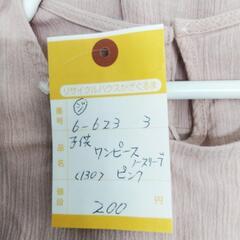 リサイクルハウスかざぐるま
ジ
番号 6-623 3
品名 子供 ワンピース
ノースリーブ
<130> ピンク
値段 200 円